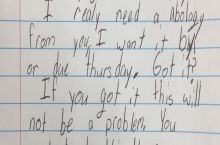 I realy need a abology
from you, I want it by
or due thursday. Got it?
If you got it this will
not be a problem. You